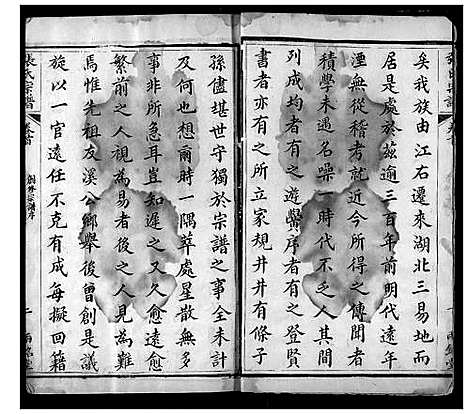 矣我族由江右遷來湖北三易地而
居是處於茲逾三百年前明代遠年
湮無從稽考就近今所得之傳聞者
積學未遇名噪一時代不乏人其間
列成均者有之遊黌序者有之登賢
書者亦有之所立家規井井有條子
孫儘堪世守獨於宗譜之事全未計
及何也想爾時一隅萃處星散無多
事非所急耳豈知遲之又久愈遠愈
繁前之人視為易者後之人見為難
焉惟先祖友溪公鄉舉後曾創是議
旋以一官遠任不克有成每擬回籍
張氏宗譜
卷首
創修宗譜序
二